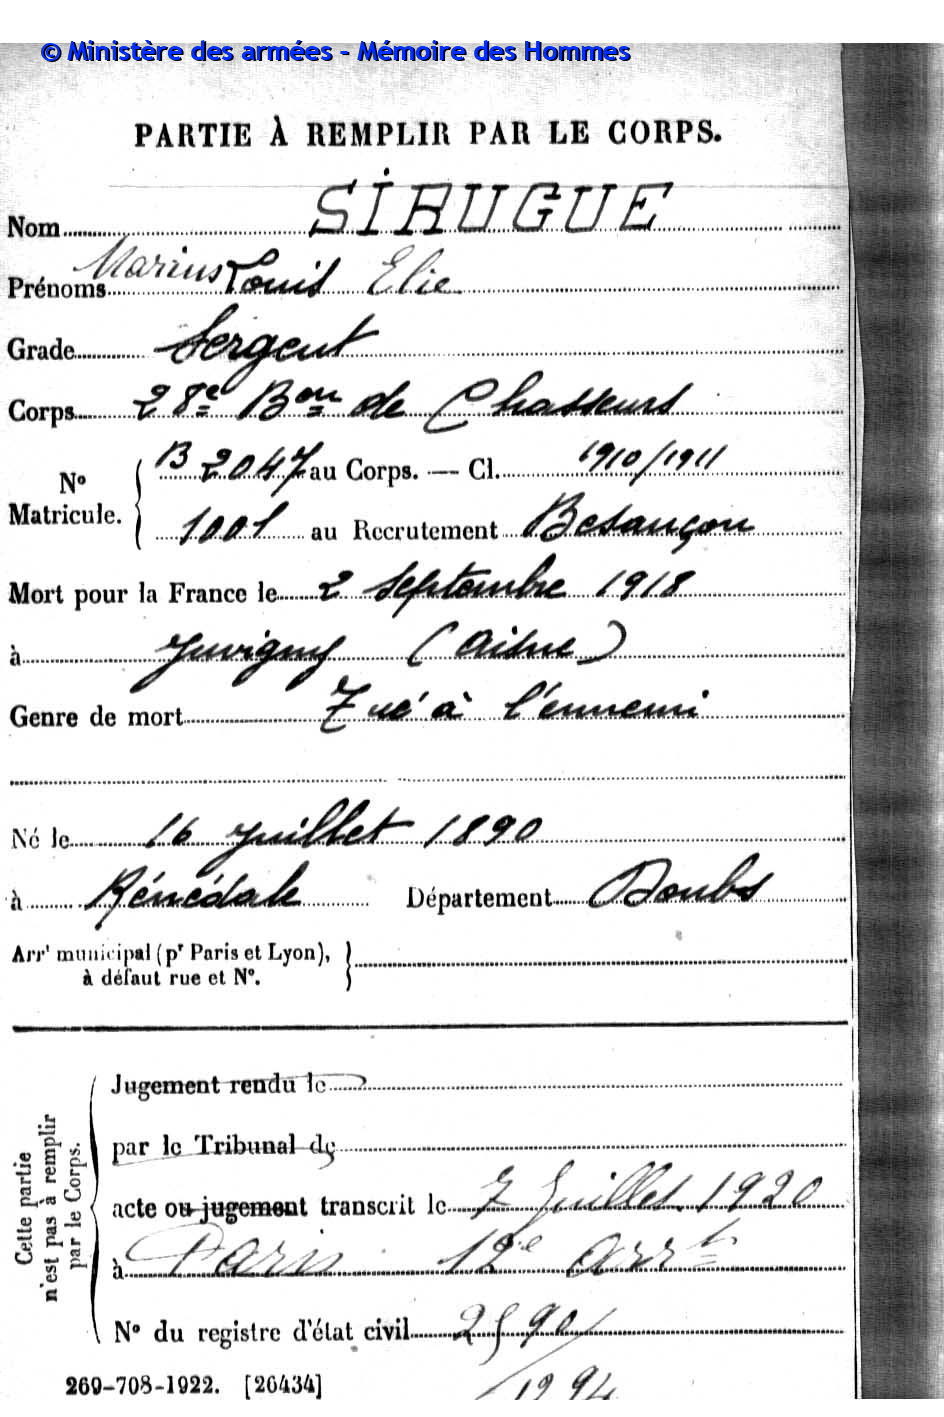 © Ministère des armées - Mémoire des Hommes
PARTIE À REMPLIR PAR LE CORPS.
Nom SIRUGUE
Prénoms Marius Louis Elie
Grade Sergent
Corps 28e Bon de Chasseurs
No Matricule. B 2047 au Corps. — Cl. 1910/1911
1001 au Recrutement Besançon
Mort pour la France le 2 Septembre 1918
à Juvigny (Aisne)
Genre de mort Tué à l'ennemi
Né le 16 Juillet 1890
à Rénédale Département Doubs
Arrt municipal (pr Paris et Lyon),
à défaut rue et No.
Cette partie
n'est pas à remplir
par le Corps.
Jugement rendu le
par le Tribunal de
acte ou jugement transcrit le 7 Juillet 1920
à Paris 12e arrt
No du registre d'état civil 2590/
269-708-1922. [26434]
/1994